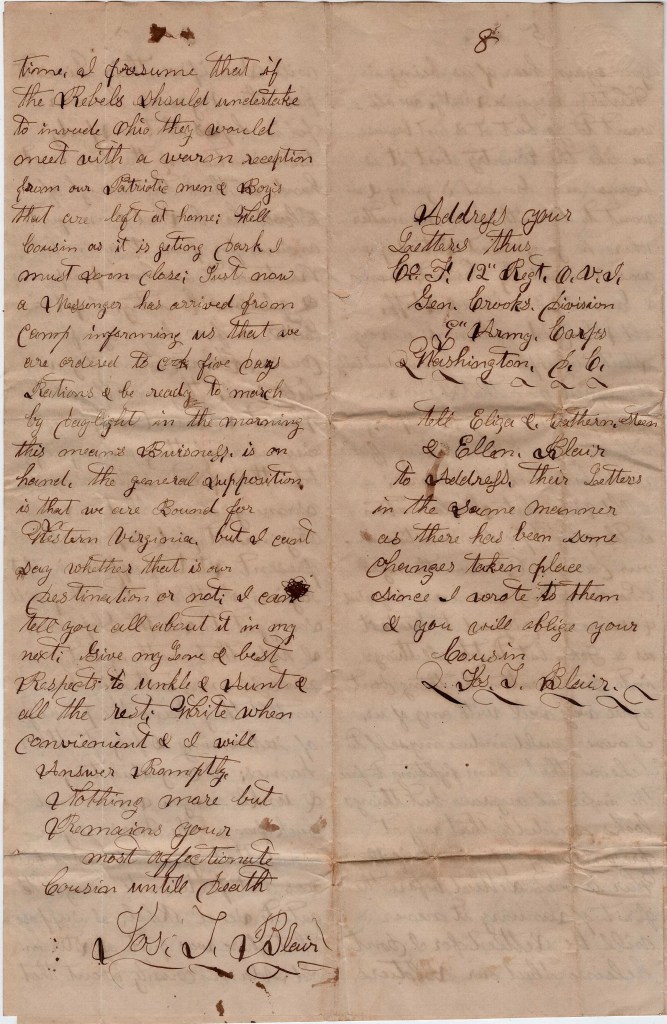 time, I presume that if
the Rebels should undertake
to invade Ohio they would
meet with a warm reception
from our Patriotic men & Boys
that are left at home; Will
Cousin as it is geting Dark I
must soon close; Just now
a Messenger has arrived from
camp informing us that we
are ordered to five Days
Rations & be ready to march
by Daylight in the morning
this means Buisness, is on
hand, the general supposition
is that we are Bound for
Western Virginia, but I cant
say whether that is our
Destination or not; I can
tell you all about it in my
next; Give my Love & best
Respects to unkle & Aunt &
all the rest; Write when
convienient & I will
Answer Promptly,
Nothing more but
Remains your
most affectionate
Cousin untill Death
Jos. T. Blair
8
Address your
Letters thus
Co. F. 12" Regt. O. V. I.
Gen. Crooks. Division
9" Army. Corps
Washington, D. C.
tell Eliza &
& Ellen. Blair
to Address, their Letters
in the same manner
as there has been some
changes taken place
since I wrote to them
& you will oblige your
Cousin
Jos. T. Blair.